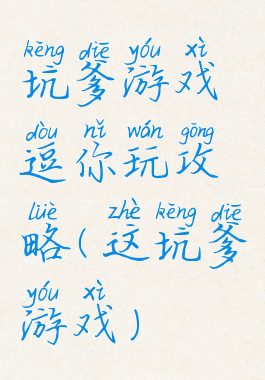 kēng diē yóu xì
坑爹游戏
dòu nǐ wán gōng
逗你玩攻
lüè zhè kēng diē
略(这坑爹
yóu xì
游戏)